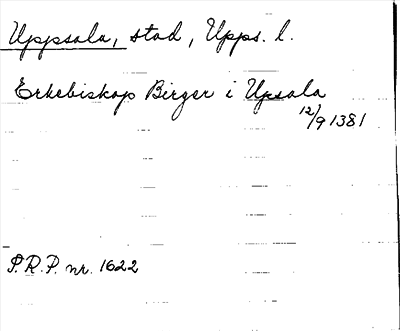 Uppsala, stad, Upps. l.
Erkebiskop Birger i Upsala
12/9 1381
P.R.P. nr. 1622